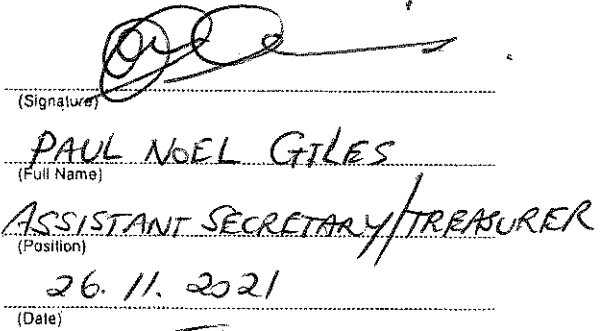 (Signature)
PAUL NOEL GILES
(Full Name)
ASSISTANT SECRETARY/TREASURER
(Position)
26. 11. 2021
(Date)